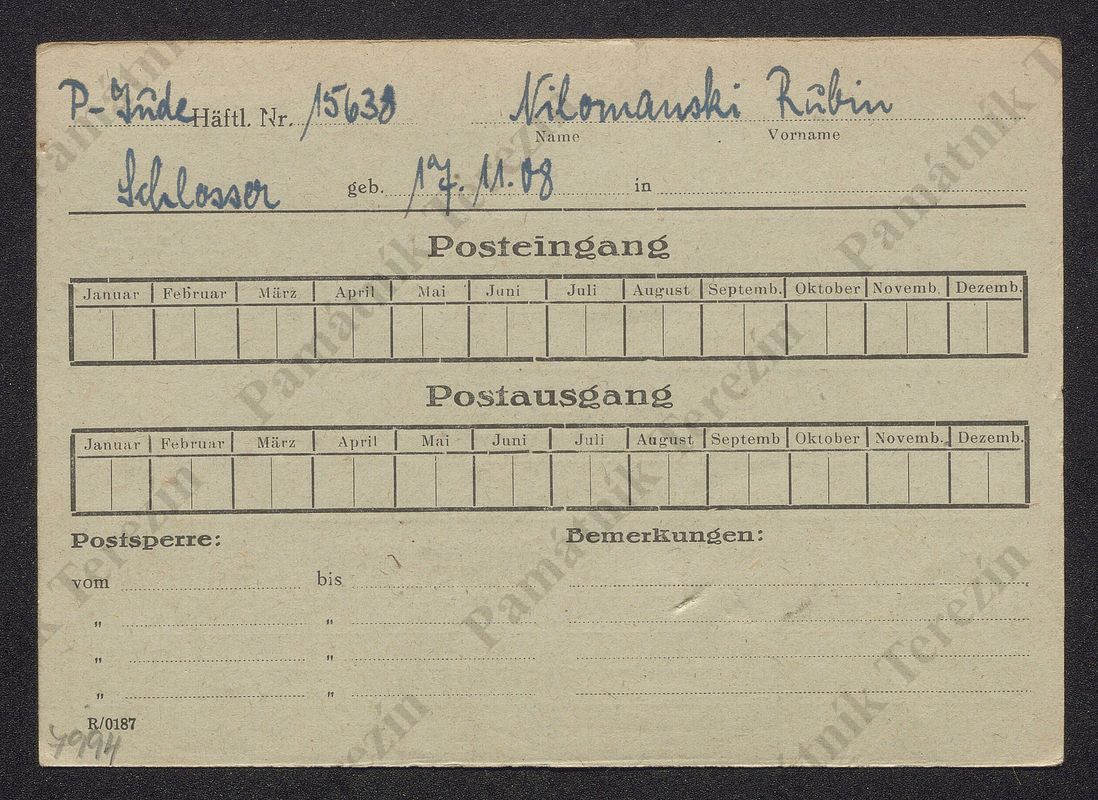 P-Jude Häftl. Nr. 15638 Nilomanski Rubin
Name Vorname
Schlosser geb. 17. 11. 08 in
Posteingang
Januar Februar März April Mai Juni Juli August Septemb. Oktober Novemb. Dezemb.
Postausgang
Januar Februar März April Mai Juni Juli August Septemb Oktober Novemb. Dezemb.
Postsperre: Bemerkungen:
vom bis
" "
" "
" "
R/0187
7994
Památník Terezín